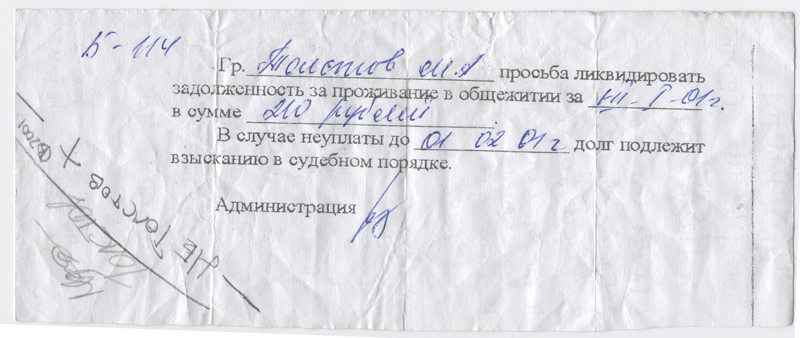 Б-114
Гр. Толстов М.А просьба ликвидировать
задолженность за проживание в общежитии за -I-01г.
в сумме 210 рублей.
В случае неуплаты до 01 02 01г долг подлежит
взысканию в судебном порядке.
Администрация
НЕ ТОЛСТОВ Х